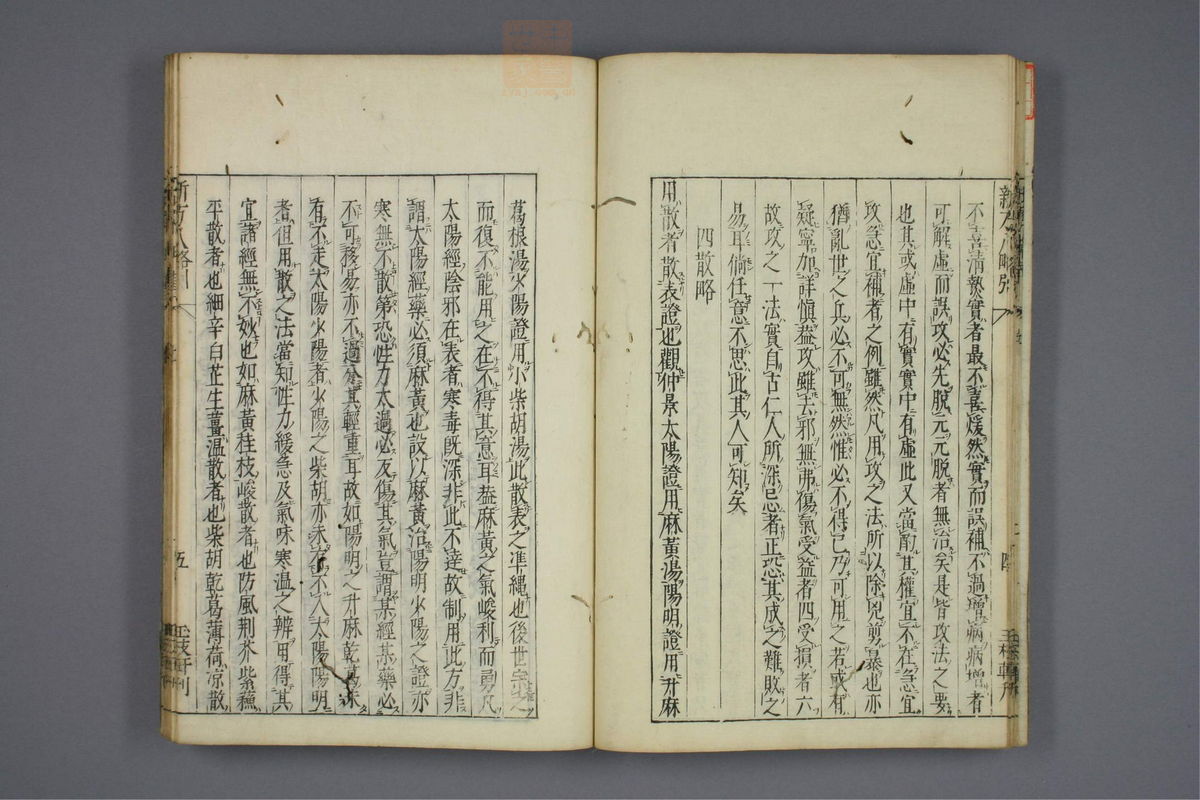 不喜清熱實者最不喜煖然實而誤補不過增病病增者
可解虛而誤攻必先脫元元脫者無治矣是皆攻法之要
也其或虛中有實實中有虛此又當酌其權宜不在急宜
攻急宜補者之例雖然凡用攻之法所以除兇剪暴也亦
猶亂世之兵必不可無然惟必不得已乃可用之若或有
疑寧加詳愼葢攻雖去邪無弗傷氣受益者四受損者六
故攻之一法實自古仁人所深忌者正恐其成之難敗之
易耳倘任意不思此其人可知矣
四散略
用散者散表證也觀仲景太陽證用麻黃湯陽明證用升麻
葛根湯少陽證用小柴胡湯此散表之準繩也後世宗之
而復不能用之在不得其意耳葢麻黃之氣峻利而勇凡
太陽經陰邪在表者寒毒旣深非此不達故制用此方非
謂太陽經藥必須麻黃也設以麻黃治陽明少陽之證亦
寒無不散第恐性力太過必反傷其氣豈謂某經某藥必
不可移易亦不過分其輕重耳故如陽明之升麻乾葛未
有不走太陽少陽者少陽之柴胡亦未有不入太陽陽明
者但用散之法當知性力緩急及氣味寒溫之辨用得其
宜諸經無不妙也如麻黃桂枝峻散者也防風荆芥紫蘇
平散者也細辛白芷生薑溫散者也柴胡乾葛薄荷凉散
新方八略引
五